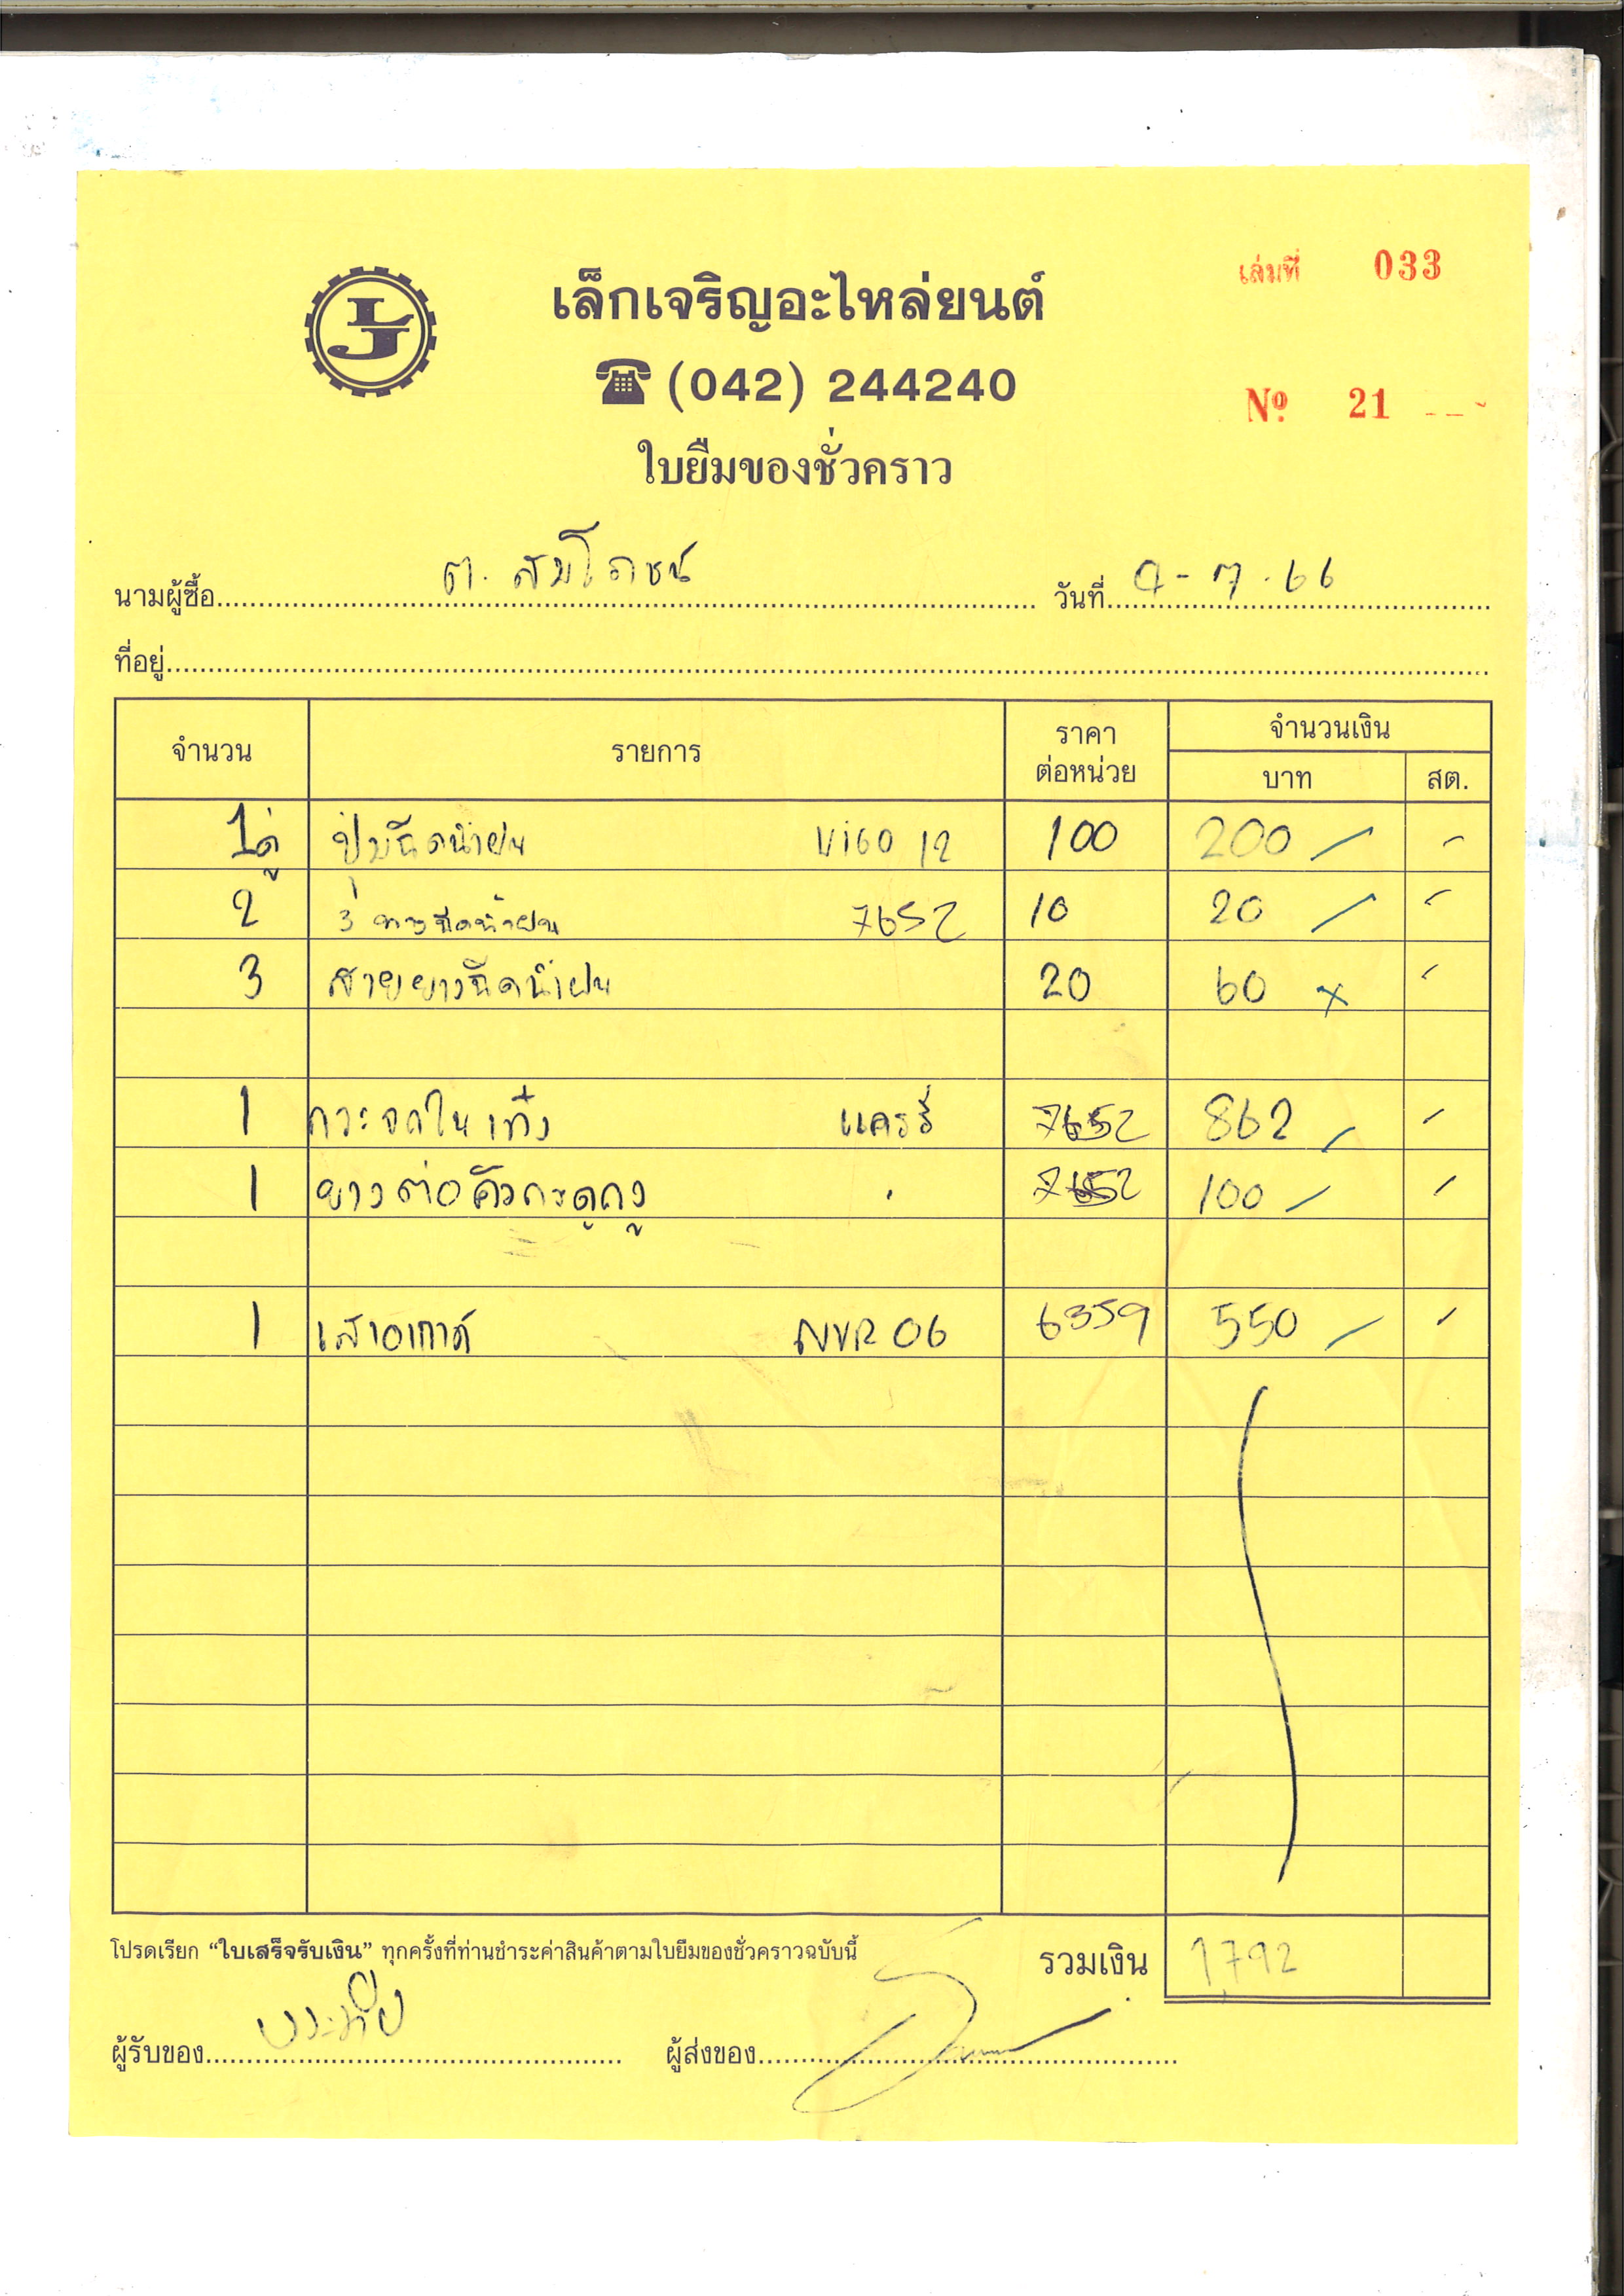 เล่มที่ 033
LJ
เล็กเจริญอะไหล่ยนต์
☎ (042) 244240
Nº 21
ใบยืมของชั่วคราว
นามผู้ซื้อ ต. สมโภชน์ วันที่ 9-7-66
ที่อยู่
จำนวน รายการ ราคาต่อหน่วย จำนวนเงิน บาท สต.
1คู่ ปั๊มฉีดน้ำฝน Vigo 12 100 200 -
2 3 ทางฉีดน้ำฝน 7652 10 20 -
3 สายยางฉีดน้ำฝน 20 60 x -
1 กระจกในเก๋ง แครรี่ 7652 862 -
1 ยางต่อคิ้วกระดูกงู 7652 100 -
1 เสาอากาศ NVR 06 6359 550 -
โปรดเรียก “ใบเสร็จรับเงิน” ทุกครั้งที่ท่านชำระค่าสินค้าตามใบยืมของชั่วคราวฉบับนี้ รวมเงิน 1,792
ผู้รับของ ผู้ส่งของ